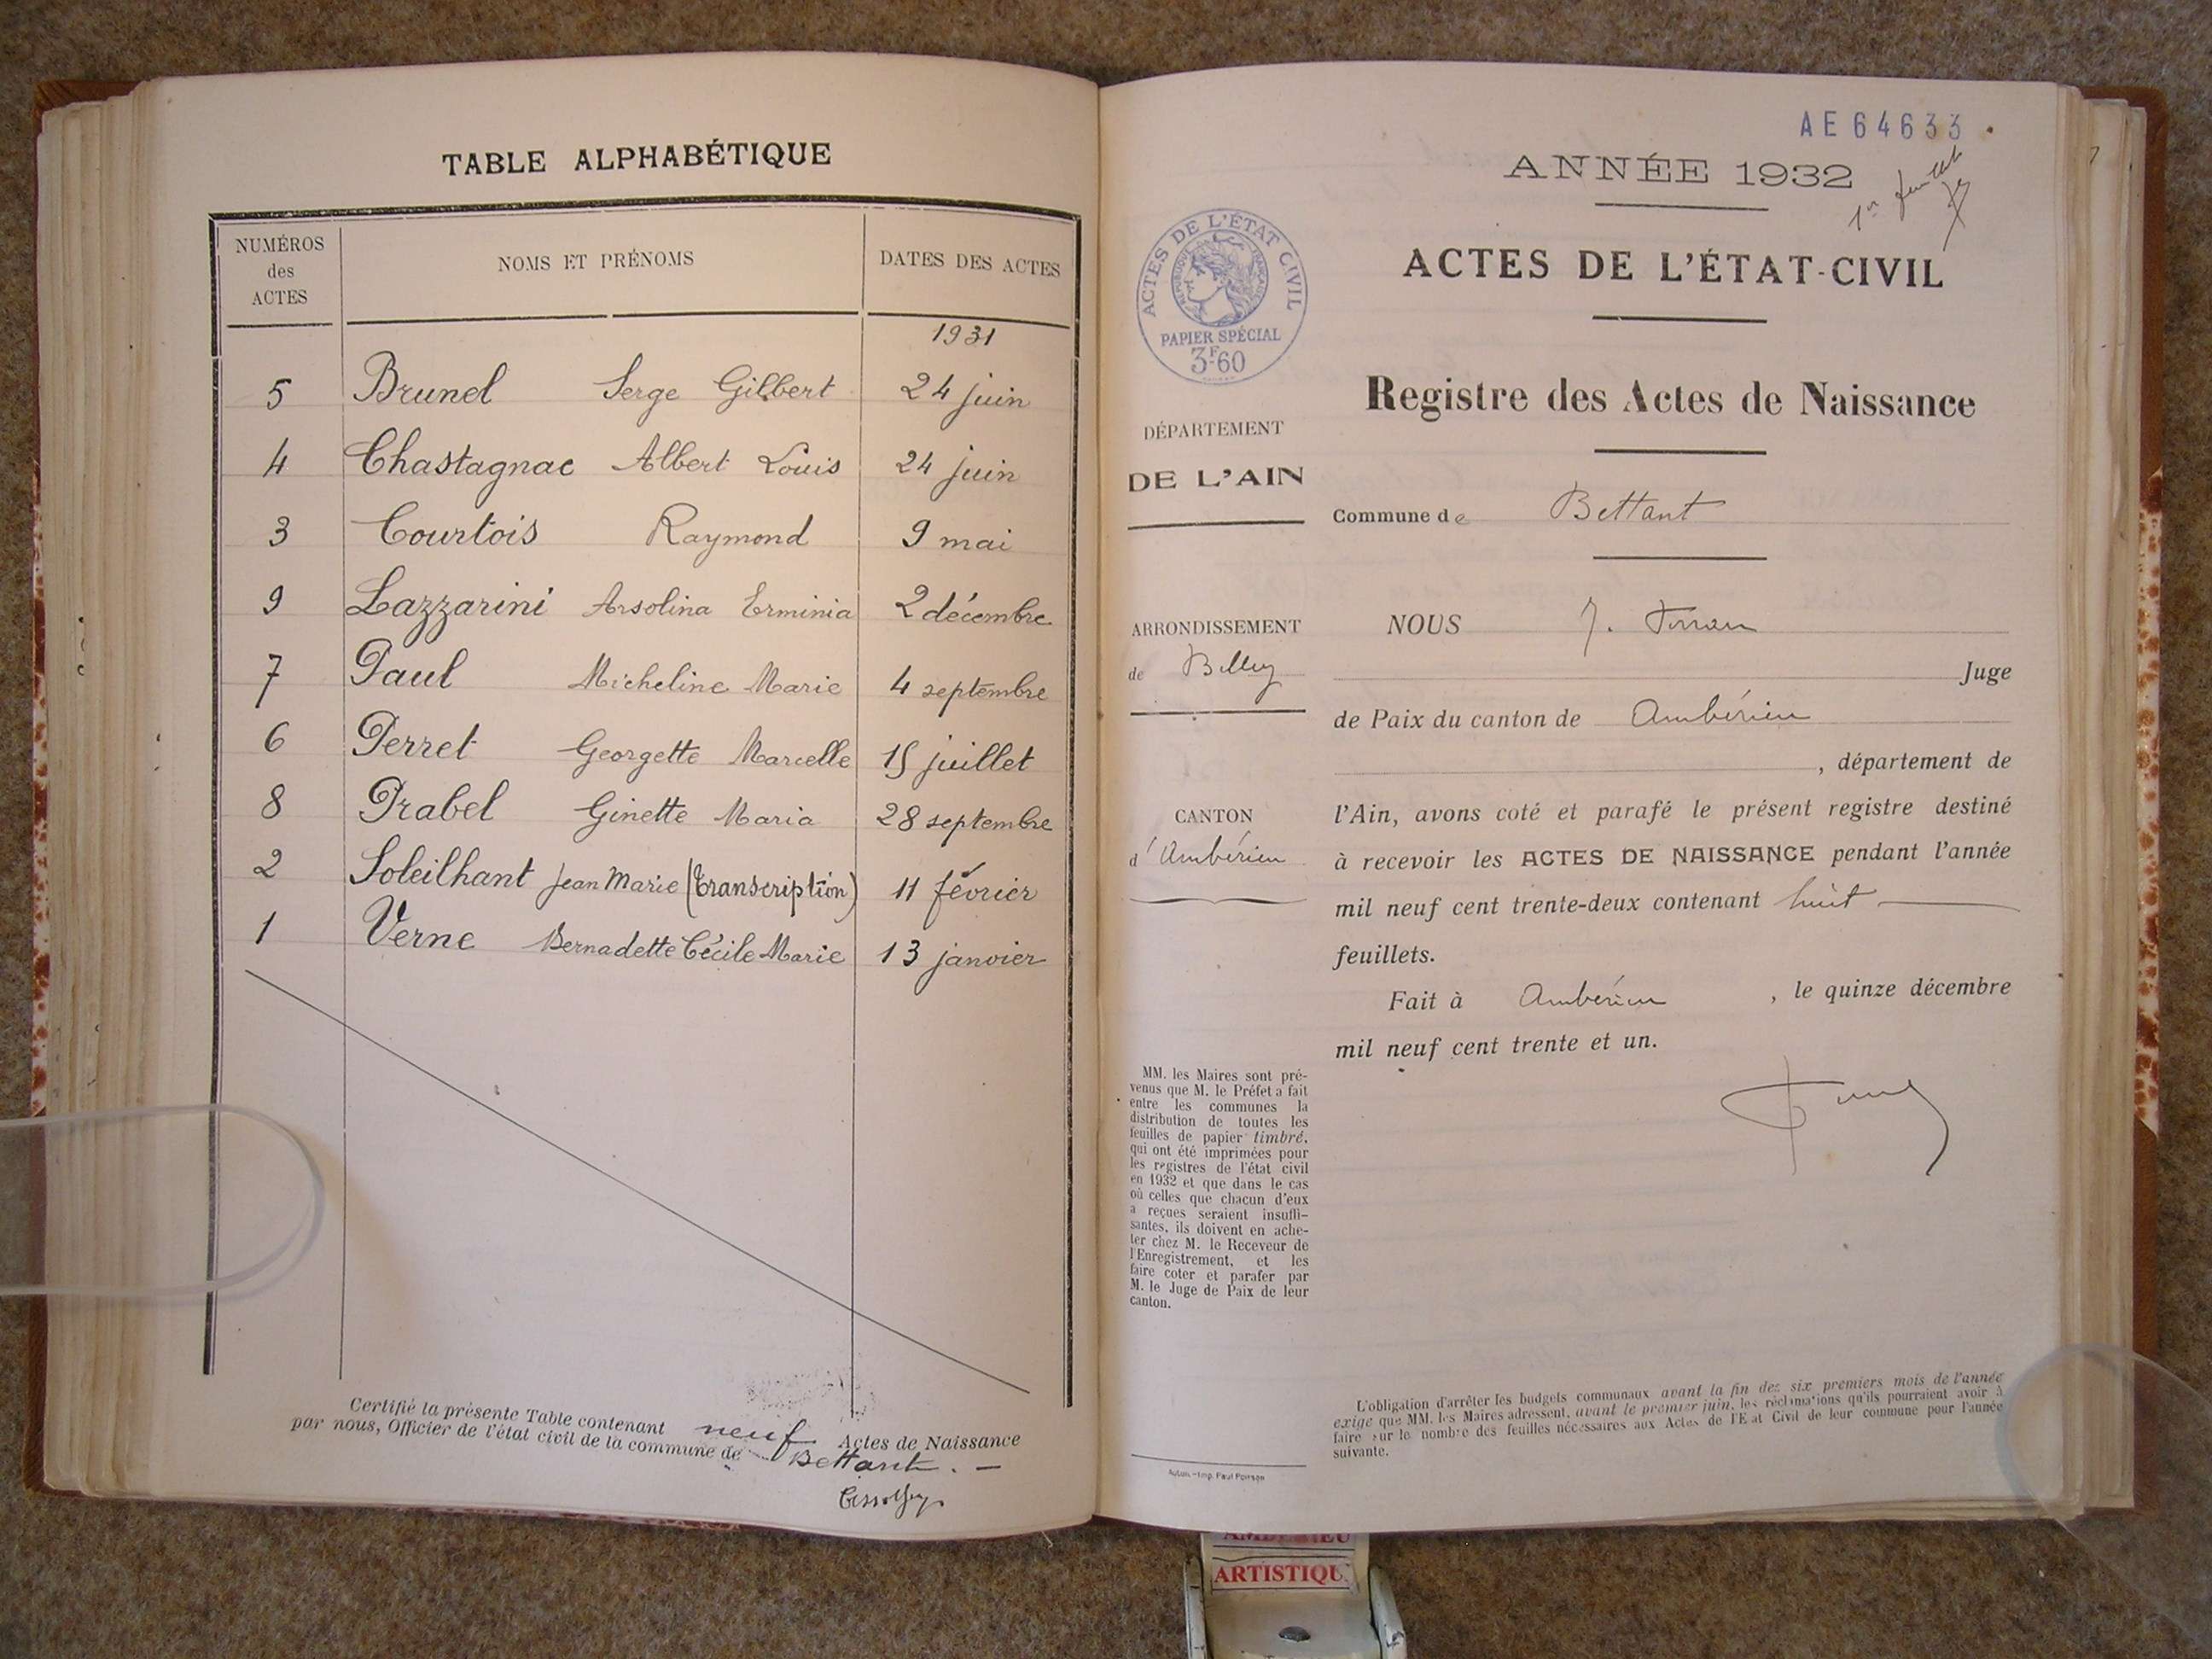 TABLE ALPHABÉTIQUE
NUMÉROS des ACTES
NOMS ET PRÉNOMS
DATES DES ACTES
1931
5 Brunel Serge Gilbert 24 juin
4 Chastagnac Albert Louis 24 juin
3 Courtois Raymond 9 mai
9 Lazzarini Arsolina Erminia 2 décembre
7 Paul Micheline Marie 4 septembre
6 Perret Georgette Marcelle 15 juillet
8 Prabel Ginette Maria 28 septembre
2 Soleilhant Jean Marie (transcription) 11 février
1 Verne Bernadette Cécile Marie 13 janvier
Certifié la présente Table contenant neuf Actes de Naissance
par nous, Officier de l'état civil de la commune de Bettant. —
AE 64633
ANNÉE 1932
1er feuillet
ACTES DE L'ÉTAT-CIVIL
Registre des Actes de Naissance
Commune de Bettant
NOUS J.
Juge
de Paix du canton de Ambérieu
, département de
l'Ain, avons coté et parafé le présent registre destiné
à recevoir les ACTES DE NAISSANCE pendant l'année
mil neuf cent trente-deux contenant huit
feuillets.
Fait à Ambérieu , le quinze décembre
mil neuf cent trente et un.
L'obligation d'arrêter les budgets communaux avant la fin des six premiers mois de l'année
exige que MM. les Maires adressent, avant le premier juin, les réclamations qu'ils pourraient avoir à
faire sur le nombre des feuilles nécessaires aux Actes de l'Etat Civil de leur commune pour l'année
suivante.
ACTES DE L'ÉTAT CIVIL
RÉPUBLIQUE FRANÇAISE
PAPIER SPÉCIAL
3F60
DÉPARTEMENT
DE L'AIN
ARRONDISSEMENT
de Belley
CANTON
d'Ambérieu
MM. les Maires sont pré-
venus que M. le Préfet a fait
entre les communes la
distribution de toutes les
feuilles de papier timbré,
qui ont été imprimées pour
les registres de l'état civil
en 1932 et que dans le cas
où celles que chacun d'eux
a reçues seraient insuffi-
santes, ils doivent en ache-
ter chez M. le Receveur de
l'Enregistrement, et les
faire coter et parafer par
M. le Juge de Paix de leur
canton.
Autun. - Imp. Paul Poirson
ARTISTIQU